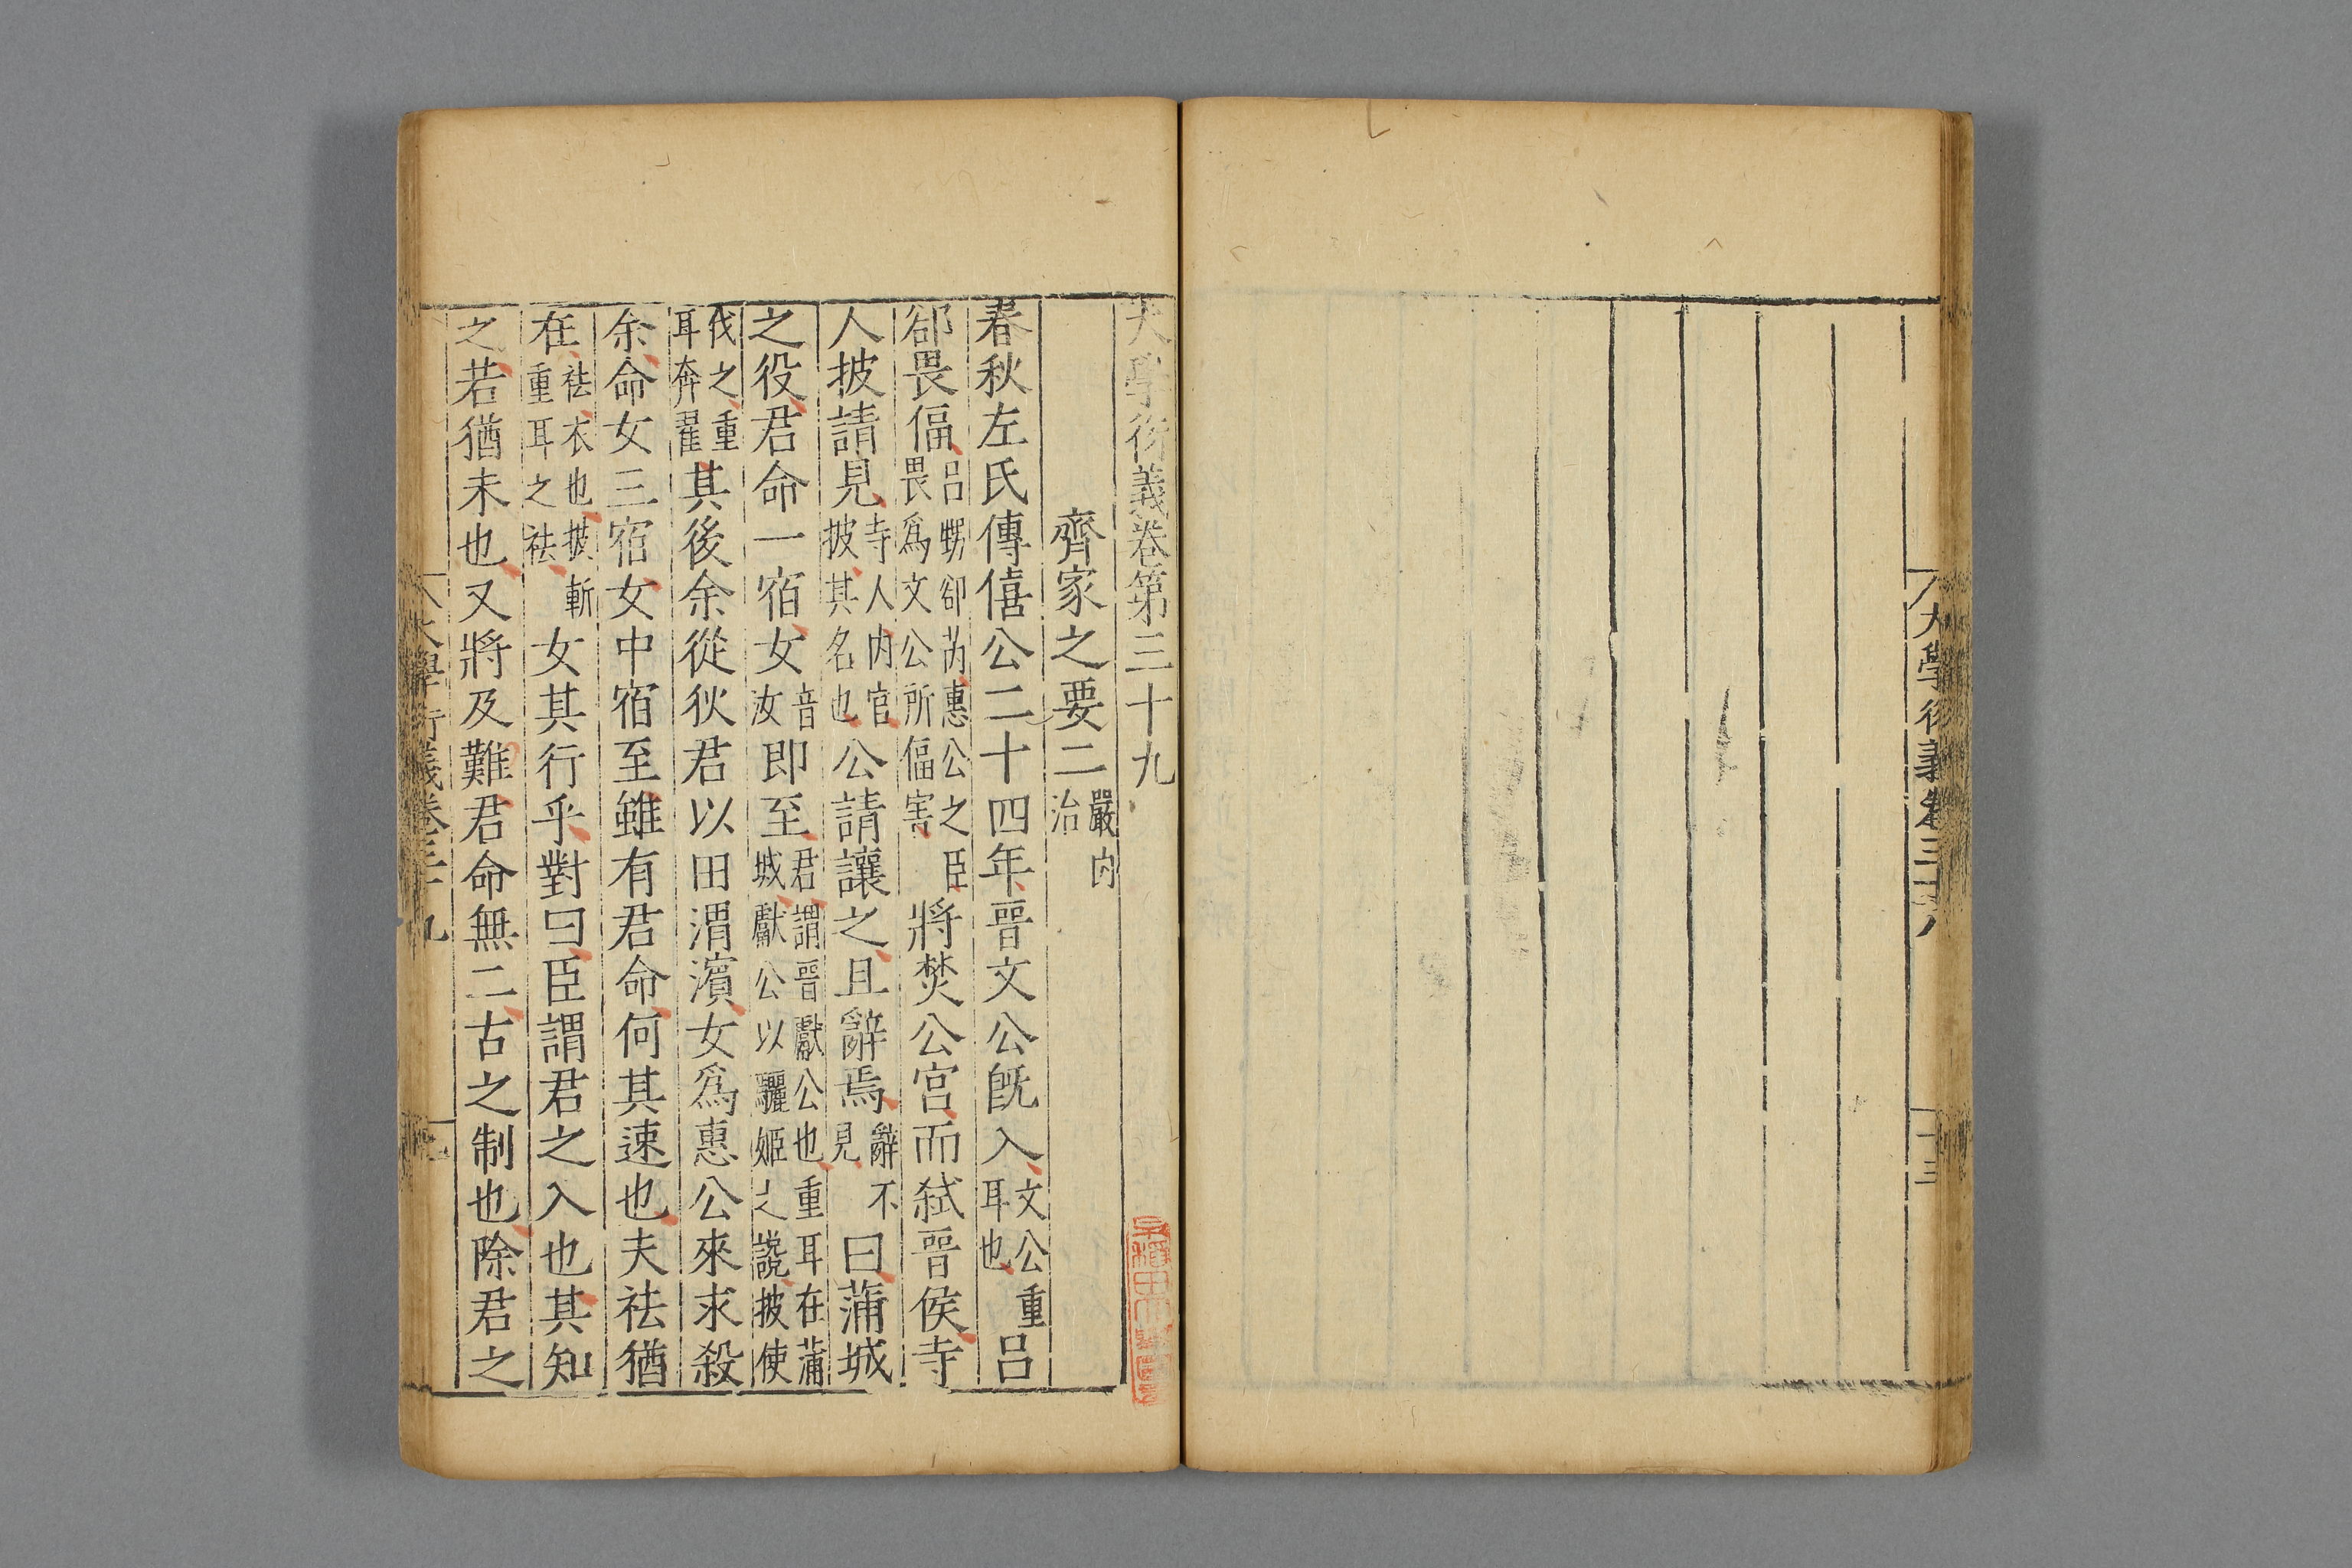 大學衍義卷三十八
十三
大學衍義卷第三十九
齊家之要二嚴内治
春秋左氏傳僖公二十四年晉文公旣入文公重耳也吕
郤畏偪吕甥郤芮惠公之臣畏爲文公所偪害將焚公宮而弑晉侯寺
人披請見寺人内官披其名也公請讓之且辭焉辭不見曰蒲城
之役君命一宿女音汝即至君謂晉獻公也重耳在蒲城獻公以驪姬之讒披使
伐之重耳奔翟其後余從狄君以田渭濱女爲惠公來求殺
余命女三宿女中宿至雖有君命何其速也夫袪猶
在袪衣也披斬重耳之袪女其行乎對曰臣謂君之入也其知
之若猶未也又將及難君命無二古之制也除君之
大學衍義卷三十九